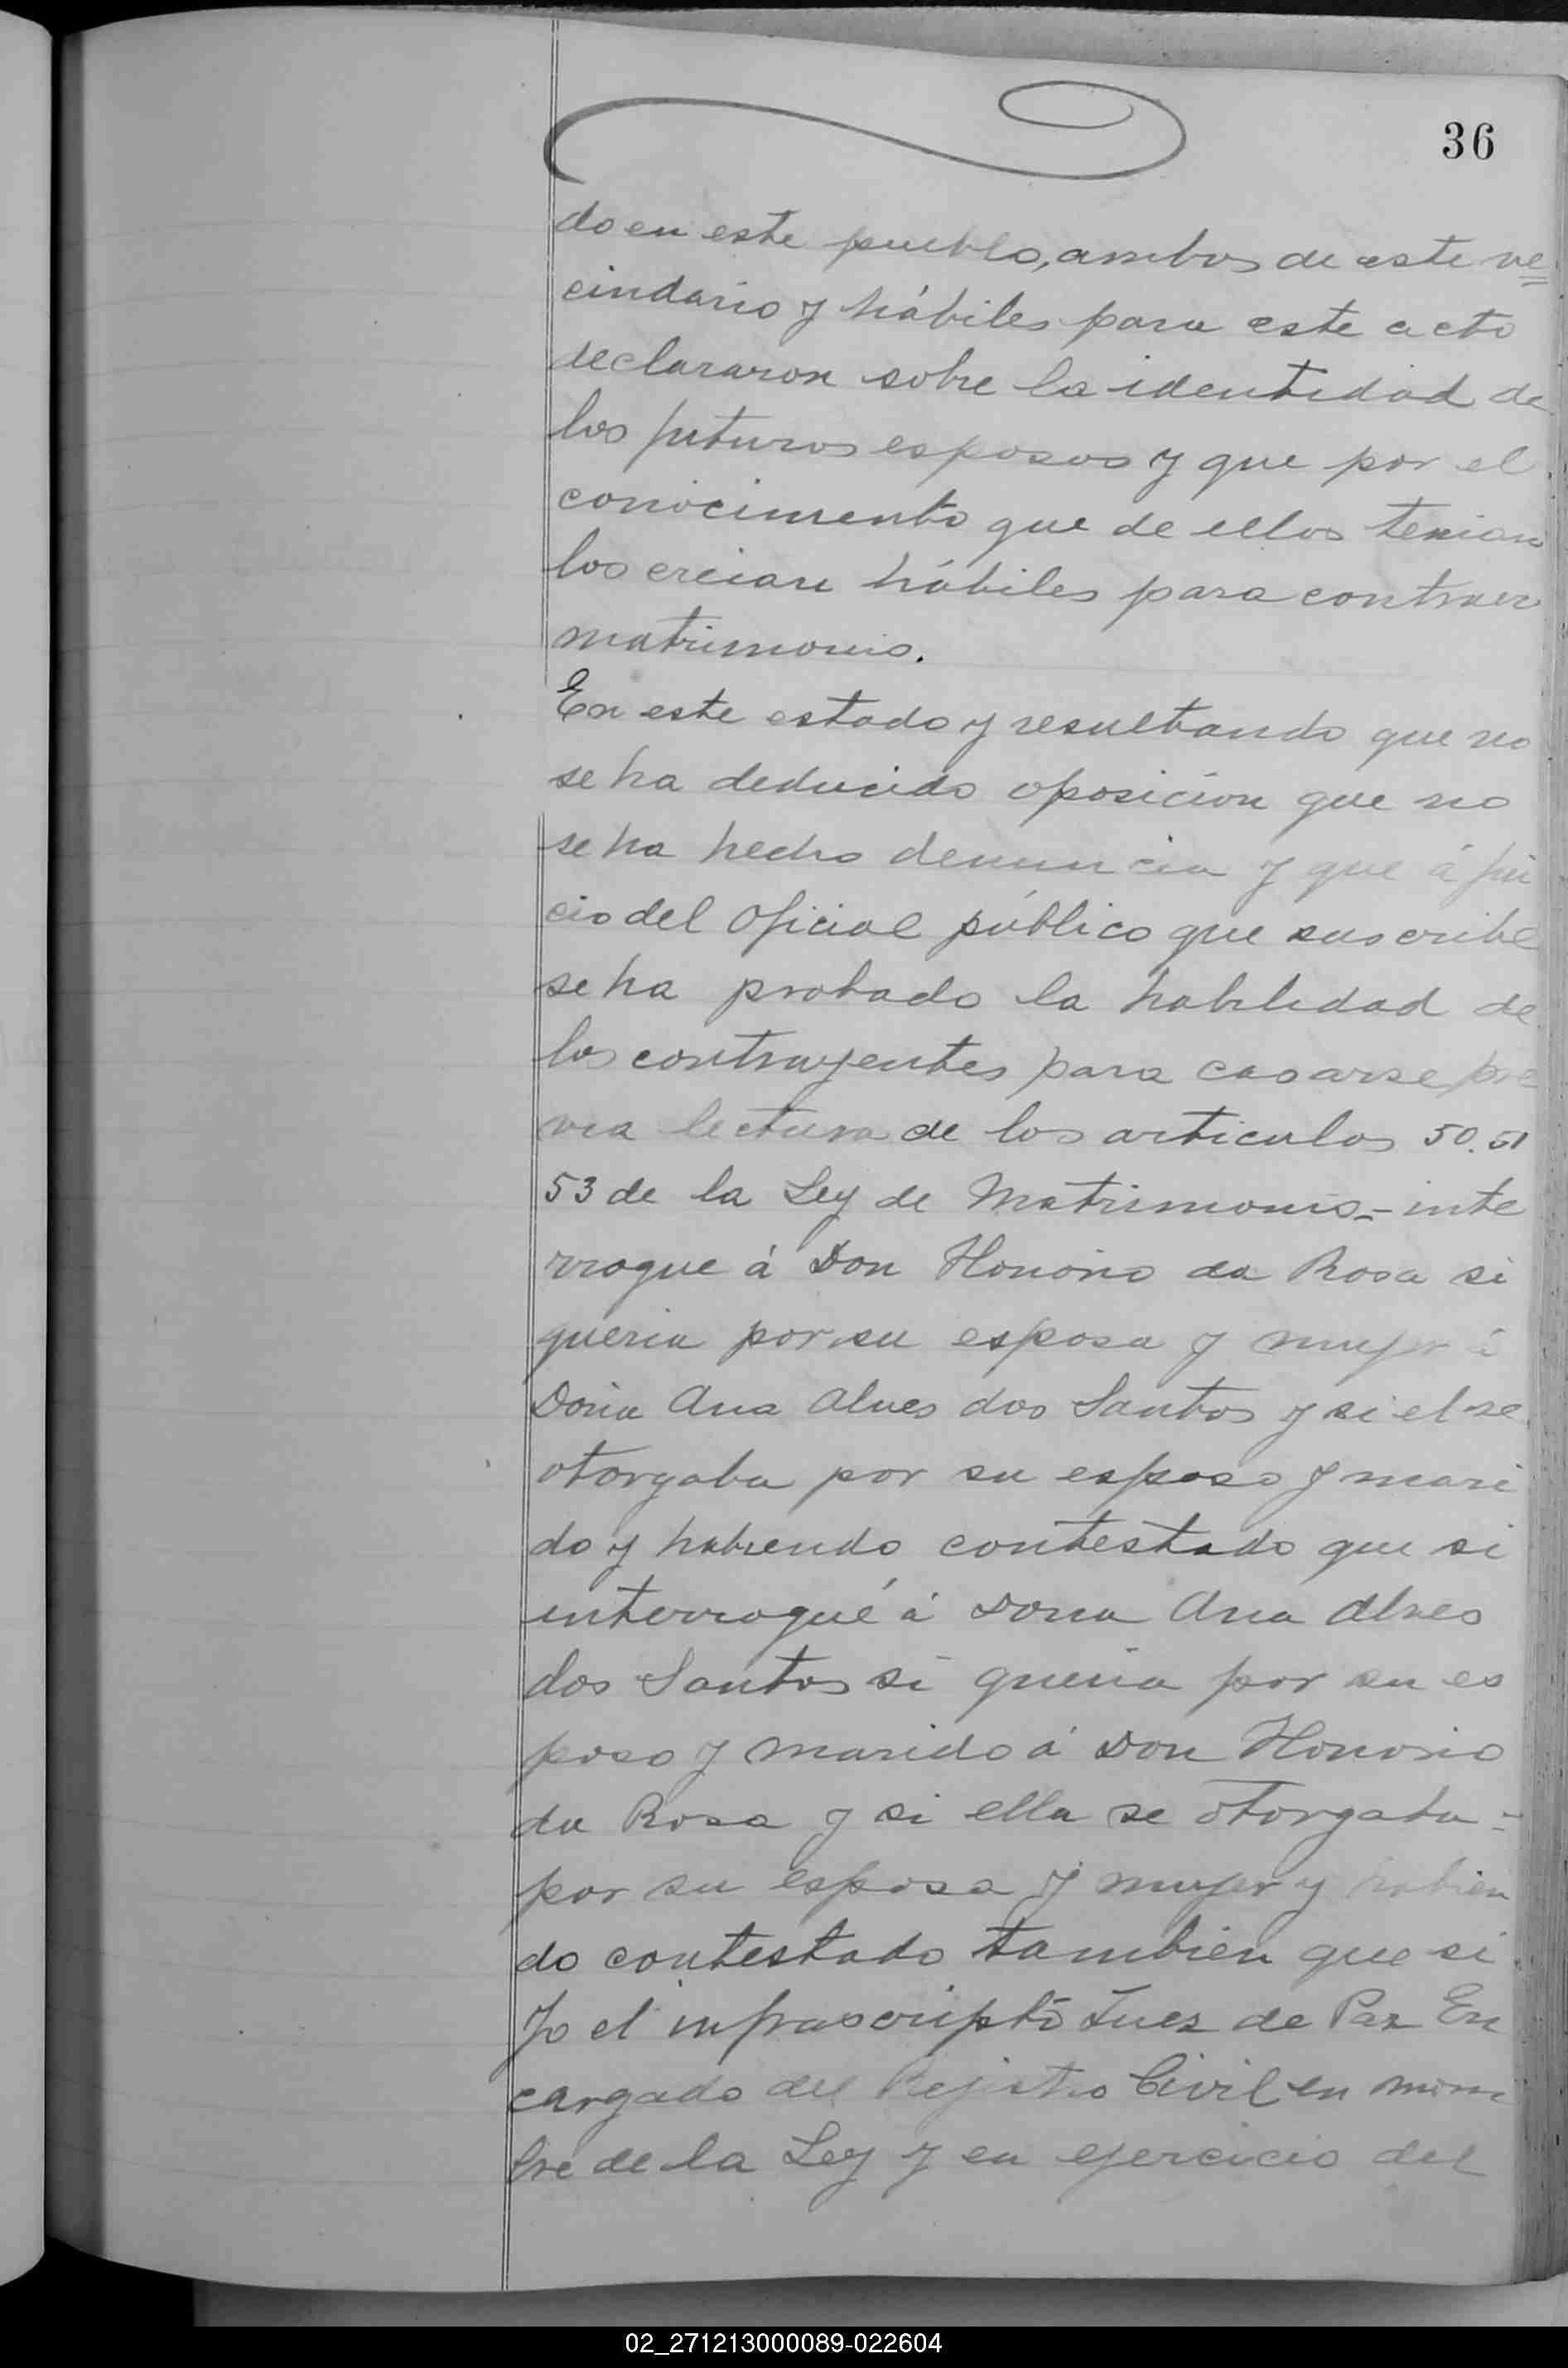 36
do en este pueblo, ambos de este ve=
cindario y hábiles para este acto
declararon sobre la identidad de
los futuros esposos y que por el
conocimiento que de ellos tenian
los creian hábiles para contraer
matrimonio.
En este estado y resultando que no
se ha deducido oposicion que no
se ha hecho denuncia y que á jui
cio del Oficial público que suscribe
se ha probado la habilidad de
los contrayentes para casarse pre
via lectura de los articulos 50. 51
53 de la Ley de Matrimonio.- inte
rrogue á Don Honorio da Rosa si
queria por su esposa y mujer á
Doña Ana Alves dos Santos y si el se
otorgaba por su esposo y mari
do y habiendo contestado que si
interrogué á Dona Ana Alves
dos Santos si queria por su es
poso y marido á Don Honorio
da Rosa y si ella se otorgaba=
por su esposa y mujer y habien
do contestado tambien que si
Yo el infrascripto Juez de Paz En
cargado del Rejistro Civil en nom
bre de la Ley y en ejercicio del
02_271213000089-022604